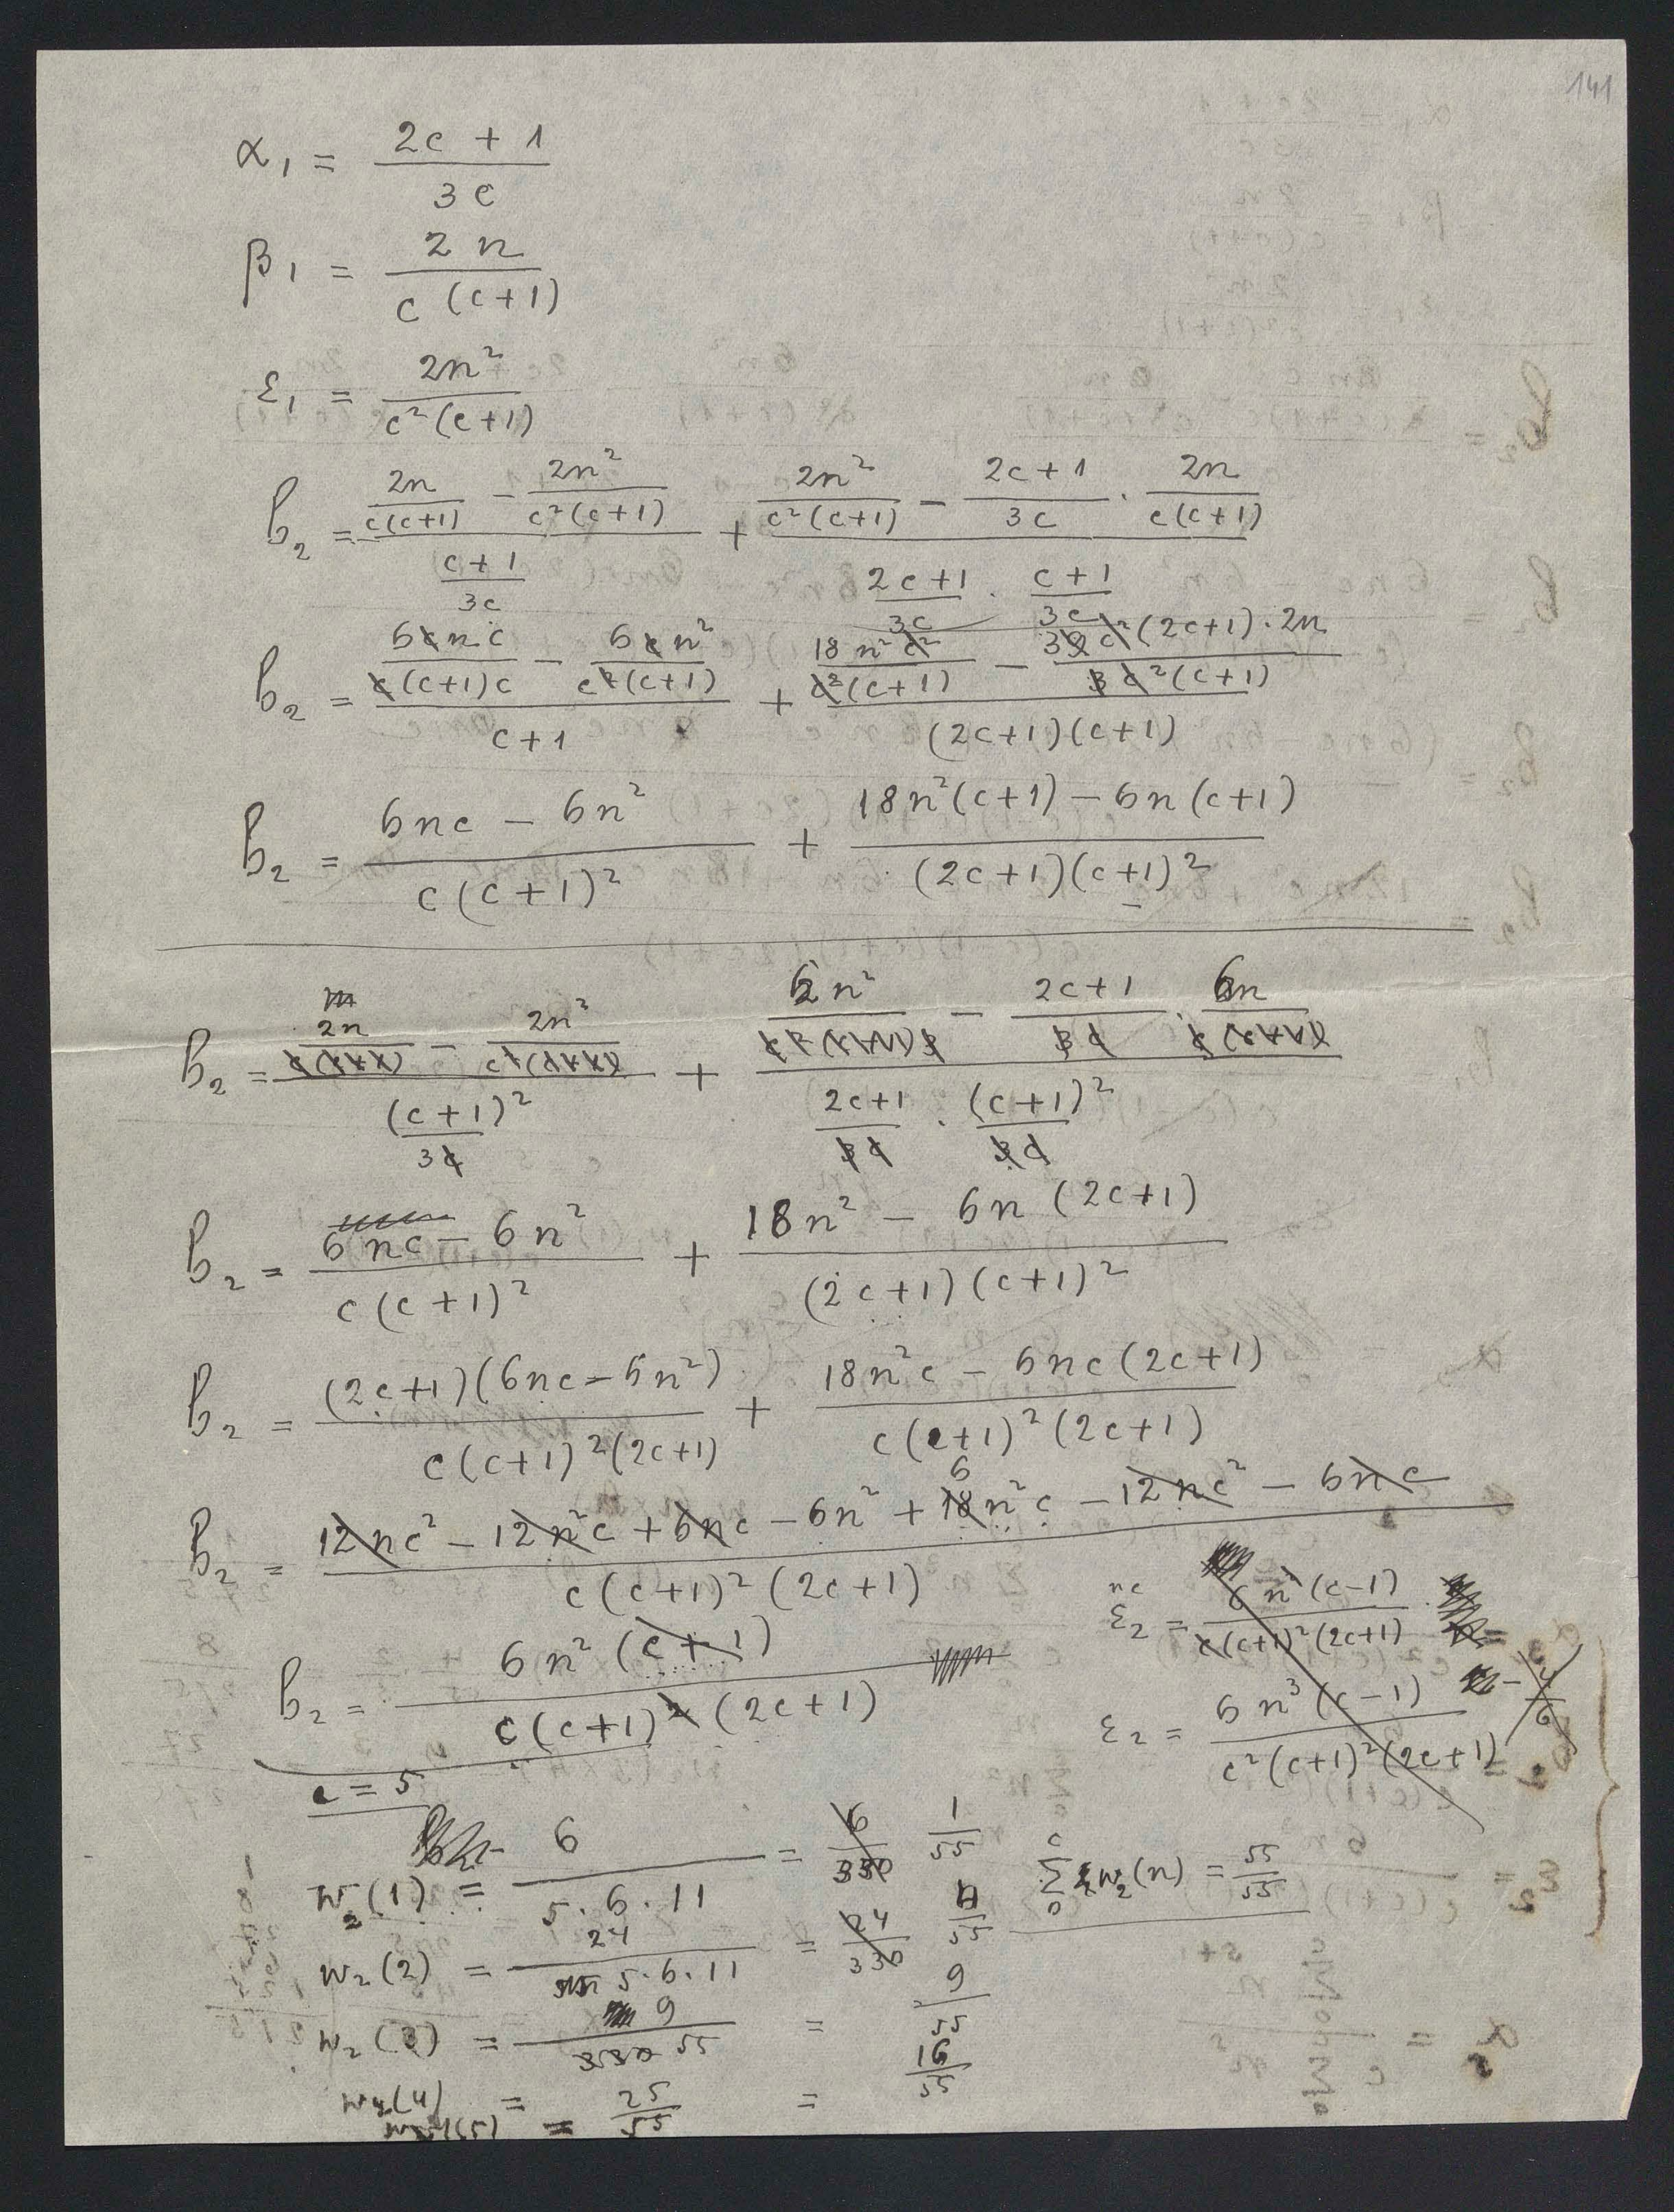 141
α₁ = (2c + 1)/(3c)
β₁ = (2n)/(c(c+1))
ε₁ = (2n²)/(c²(c+1))
β₂ = ((2n)/(c(c+1)) − (2n²)/(c²(c+1)))/((c+1)/(3c)) + ((2n²)/(c²(c+1)) − (2c+1)/(3c) · (2n)/(c(c+1)))/((2c+1)/(3c) · (c+1)/(3c))
β₂ = ((6cnc)/(c(c+1)c) − (6cn²)/(c²(c+1)))/(c+1) + ((18n²c²)/(c²(c+1)) − (39c²(2c+1)·2n)/(3c²(c+1)))/((2c+1)(c+1))
β₂ = (6nc − 6n²)/(c(c+1)²) + (18n²(c+1) − 6n(c+1))/((2c+1)(c+1)²)
β₂ = ((2n)/(c(c+1)) − (2n²)/(c²(c+1)))/((c+1)²/(3c)) + ((6n²)/(c²(c+1)) − (2c+1)/(3c) · (6n)/(c(c+1)))/((2c+1)/(3c) · (c+1)²/(3c))
β₂ = (6nc − 6n²)/(c(c+1)²) + (18n² − 6n(2c+1))/((2c+1)(c+1)²)
β₂ = ((2c+1)(6nc − 6n²))/(c(c+1)²(2c+1)) + (18n²c − 6nc(2c+1))/(c(c+1)²(2c+1))
6
β₂ = (12nc² − 12n²c + 6nc − 6n² + 18n²c − 12nc² − 6nc)/(c(c+1)²(2c+1))
nc
ε₂ = (6n²(c−1))/(c(c+1)²(2c+1)) =
β₂ = (6n²(c+1))/(c(c+1)²(2c+1))
ε₂ = (6n³(c−1))/(c²(c+1)²(2c+1))
c = 5
w₂(1) = 6/(5·6·11) = 6/330 1/55
∑₀ᶜ w₂(n) = 55/55
w₂(2) = 24/(5·6·11) = 24/330 4/55
w₂(3) = 9/55 = 9/55
w₂(4) = = 16/55
(5) = 25/55